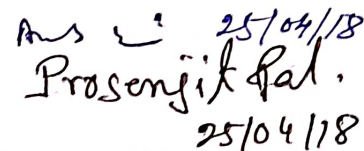 25/04/18
Prosenjit Pal.
25/04/18